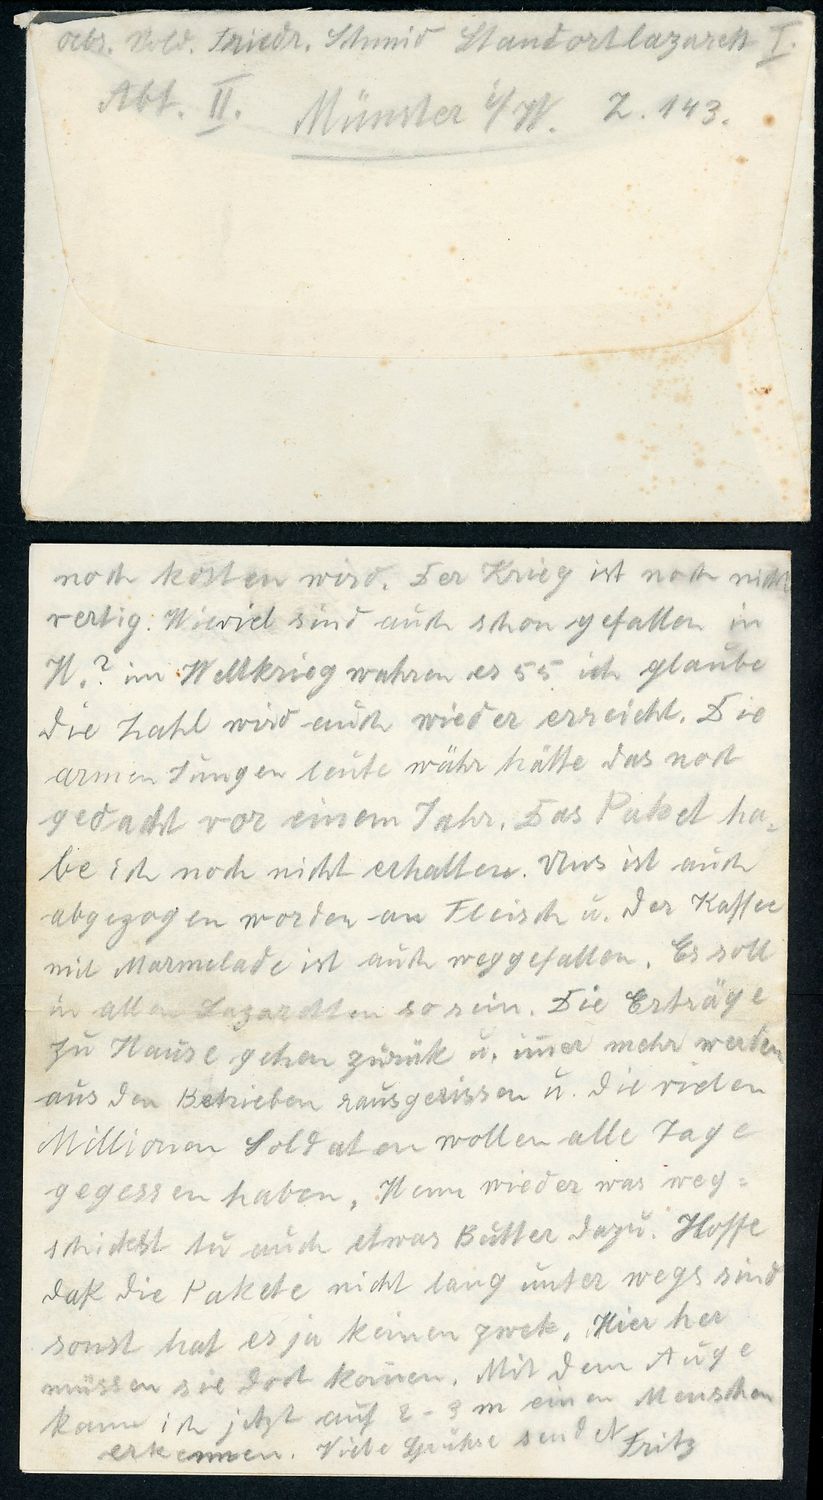 Abs. Sold. Friedr. Schmid Standortlazarett I.
Abt. II. Münster i/W. Z. 143.
noch kosten wird. Der Krieg ist noch nicht
vertig. Wieviel sind auch schon gefallen in
W.? im Weltkrieg wahren es 55 ich glaube
die Zahl wird auch wieder erreicht. Die
armen Jungen leute währ hätte das noch
gedacht vor einem Jahr. Das Paket ha=
be ich noch nicht erhalten. Uns ist auch
abgezogen worden an Fleisch u. der Kaffee
mit Marmelade ist auch weggefallen. Es soll
in allen Lazaretten so sein. Die Erträge
zu Hause gehen zurük u. imer mehr werden
aus den Betrieben rausgerissen u. die vielen
Millionen Soldaten wollen alle Tage
gegessen haben. Wenn wieder was weg=
schickst tu auch etwas Butter dazu. Hoffe
daß die Pakete nicht lang unter wegs sind
sonst hat es ja keinen zwek. Hier her
müssen sie doch komen. Mit dem Auge
kann ich jetzt auf 2-3 m einen Menschen
erkennen. Viele Grühse sendet Fritz